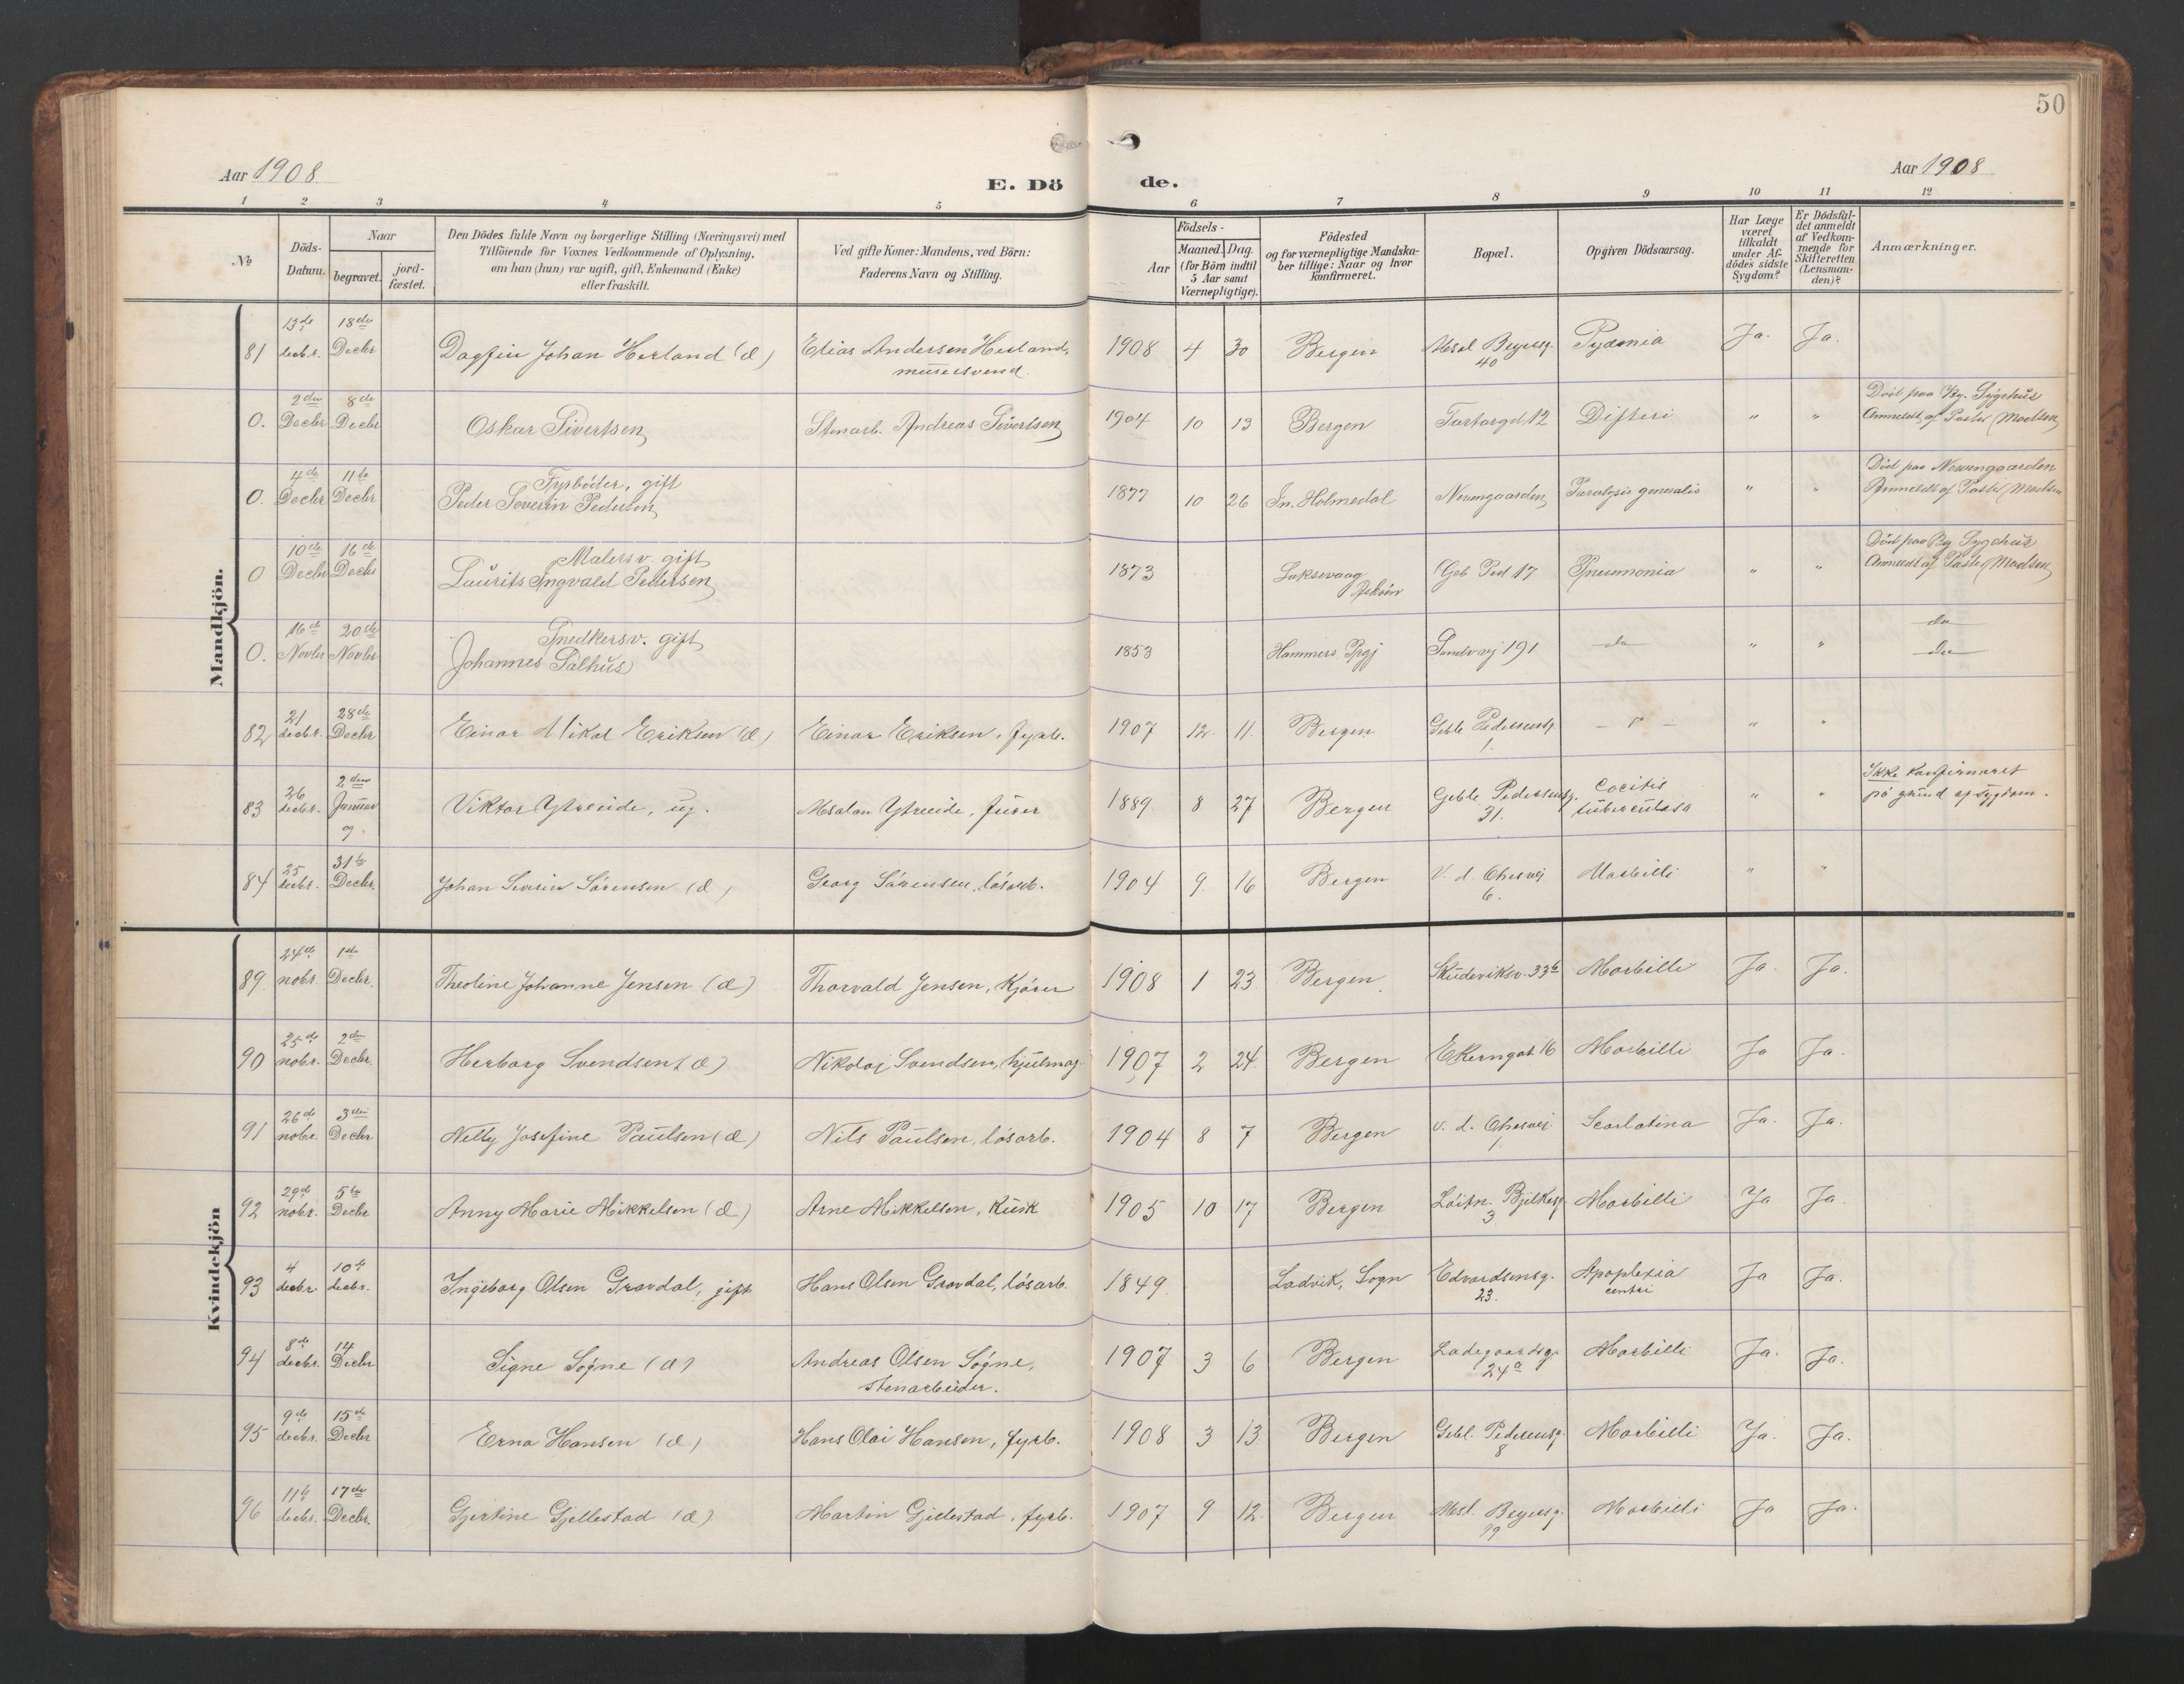 50
Aar 1908
E. Dö
de.
Aar 1908
1 2 3 4 5 6 7 8 9 10 11 12
No
Döds-
Datum.
Naar
begravet. jord-
fæstet.
Den Dödes fulde Navn og borgerlige Stilling (Næringsvei) med
Tilföiende for Voxnes Vedkommende af Oplysning,
om han (hun) var ugift, gift, Enkemand (Enke)
eller fraskilt.
Ved gifte Koner: Mandens, ved Börn:
Faderens Navn og Stilling.
Födsels-
Aar
Maaned. Dag.
(for Börn indtil
5 Aar samt
Værnepligtige).
Födested
og for værnepligtige Mandska-
ber tillige: Naar og hvor
konfirmeret.
Bopæl.
Opgiven Dödsaarsag.
Har Læge
været
tilkaldt
under Af-
dödes sidste
Sygdom?
Er Dödsfal-
det anmeldt
af Vedkom-
mende for
Skifteretten
(Lensman-
den)?
Anmærkninger.
Mandkjön.
81 13de decbr. 18de Decbr Dagfin Johan Herland (d) Elias Andersen Herland, 1908 4 30 Bergen Absal. Beyersg. 40 Pyæmia Ja. Ja.
murersvend
0. 2den Decbr 8de Decbr Oskar Sivertsen Stenarb. Andreas Sivertsen 1904 10 13 Bergen Tartargd 12 Difteri " " Död paa Bg. Sygehus
Anmeldt af Pastor Madsen
0. 4de Decbr 11te Decbr Fyrböder, gift
Peder Severin Pedersen 1877 10 26 In. Holmedal Neuengaarden Paralysis generalis " " Död paa Neuengaarden
Anmeldt af Pastor Madsen
0 10de Decbr 16de Decbr Malersv. gift
Laurits Ingvald Pedersen 1873 Laksevaag Askøen Geb Ped 17 Pneumonia " " Död paa Bg Sygehus
Anmeldt af Pastor Madsen
0. 16de Novbr 20de Novbr Snedkersv. gift
Johannes Salhus 1853 Hammers Prgj Sandvej 191 do " " do
do
82 21 decbr. 28de Decbr Einar Mikal Eriksen (d) Einar Eriksen, fyrb. 1907 12 11. Bergen Geble Pedersensg. 1. - " - " "
83 26 decbr. 2den Januar 9. Viktor Ytreeide, ug. Absalon Ytreeide, furer 1889 8 27 Bergen Geble Pedersensg. 31. Cocitis tuberculosa " " Ikke konfirmeret
på grund af sygdom.
84 25 decbr. 31te Decbr. Johan Severin Sörensen (d) Georg Sörensen, lösarb. 1904 9. 16 Bergen V. d. Ohesvej 6. Morbilli " "
Kvindekjön
89 24de nobr. 1ste Decbr. Theoline Johanne Jensen (d) Thorvald Jensen, Kjörer 1908 1 23 Bergen. Skudeviksv. 33b Morbilli Ja. Ja.
90 25de nobr. 2den Decbr. Herborg Svendsen (d) Nikolai Svendsen, hjulmag. 1907 2 24. Bergen Ekerngat. 16 Morbilli Ja Ja.
91 26de nobr. 3die Decbr Nelly Josefine Paulsen (d) Nils Paulsen, lösarb. 1904 8 7 Bergen v. d. Ohesvei 1. Scarlatina Ja. Ja.
92 29de nobr. 5te Decbr Anny Marie Mikkelsen (d) Arne Mikkelsen, Kusk 1905 10 17 Bergen Löitn. Bjelkesg 3 Morbilli Ja Ja.
93 4 decbr. 10de decbr. Ingeborg Olsen Gravdal, gift Hans Olsen Gravdal, lösarb. 1849. Ladvik, Sogn Edvardsensg. 23. Apoplexia Ja Ja.
94 8de decbr. 14 Decbr Signe Sogne (d) Andreas Olsen Sogne, 1907 3 6 Bergen Ladegaardsg. 24a Morbilli Ja. Ja.
stenarbeider.
95 9de decbr. 15de Decbr Erna Hansen (d) Hans Olai Hansen, fyrb. 1908 3 13 Bergen Gebl. Pedersensg. 8 Morbilli Ja. Ja.
96 11te decbr. 17de Decbr. Gjertine Gjellestad (d) Martin Gjellestad, fyrb. 1907 9 12. Bergen Absl. Beyersg. 19 Morbilli Ja Ja.